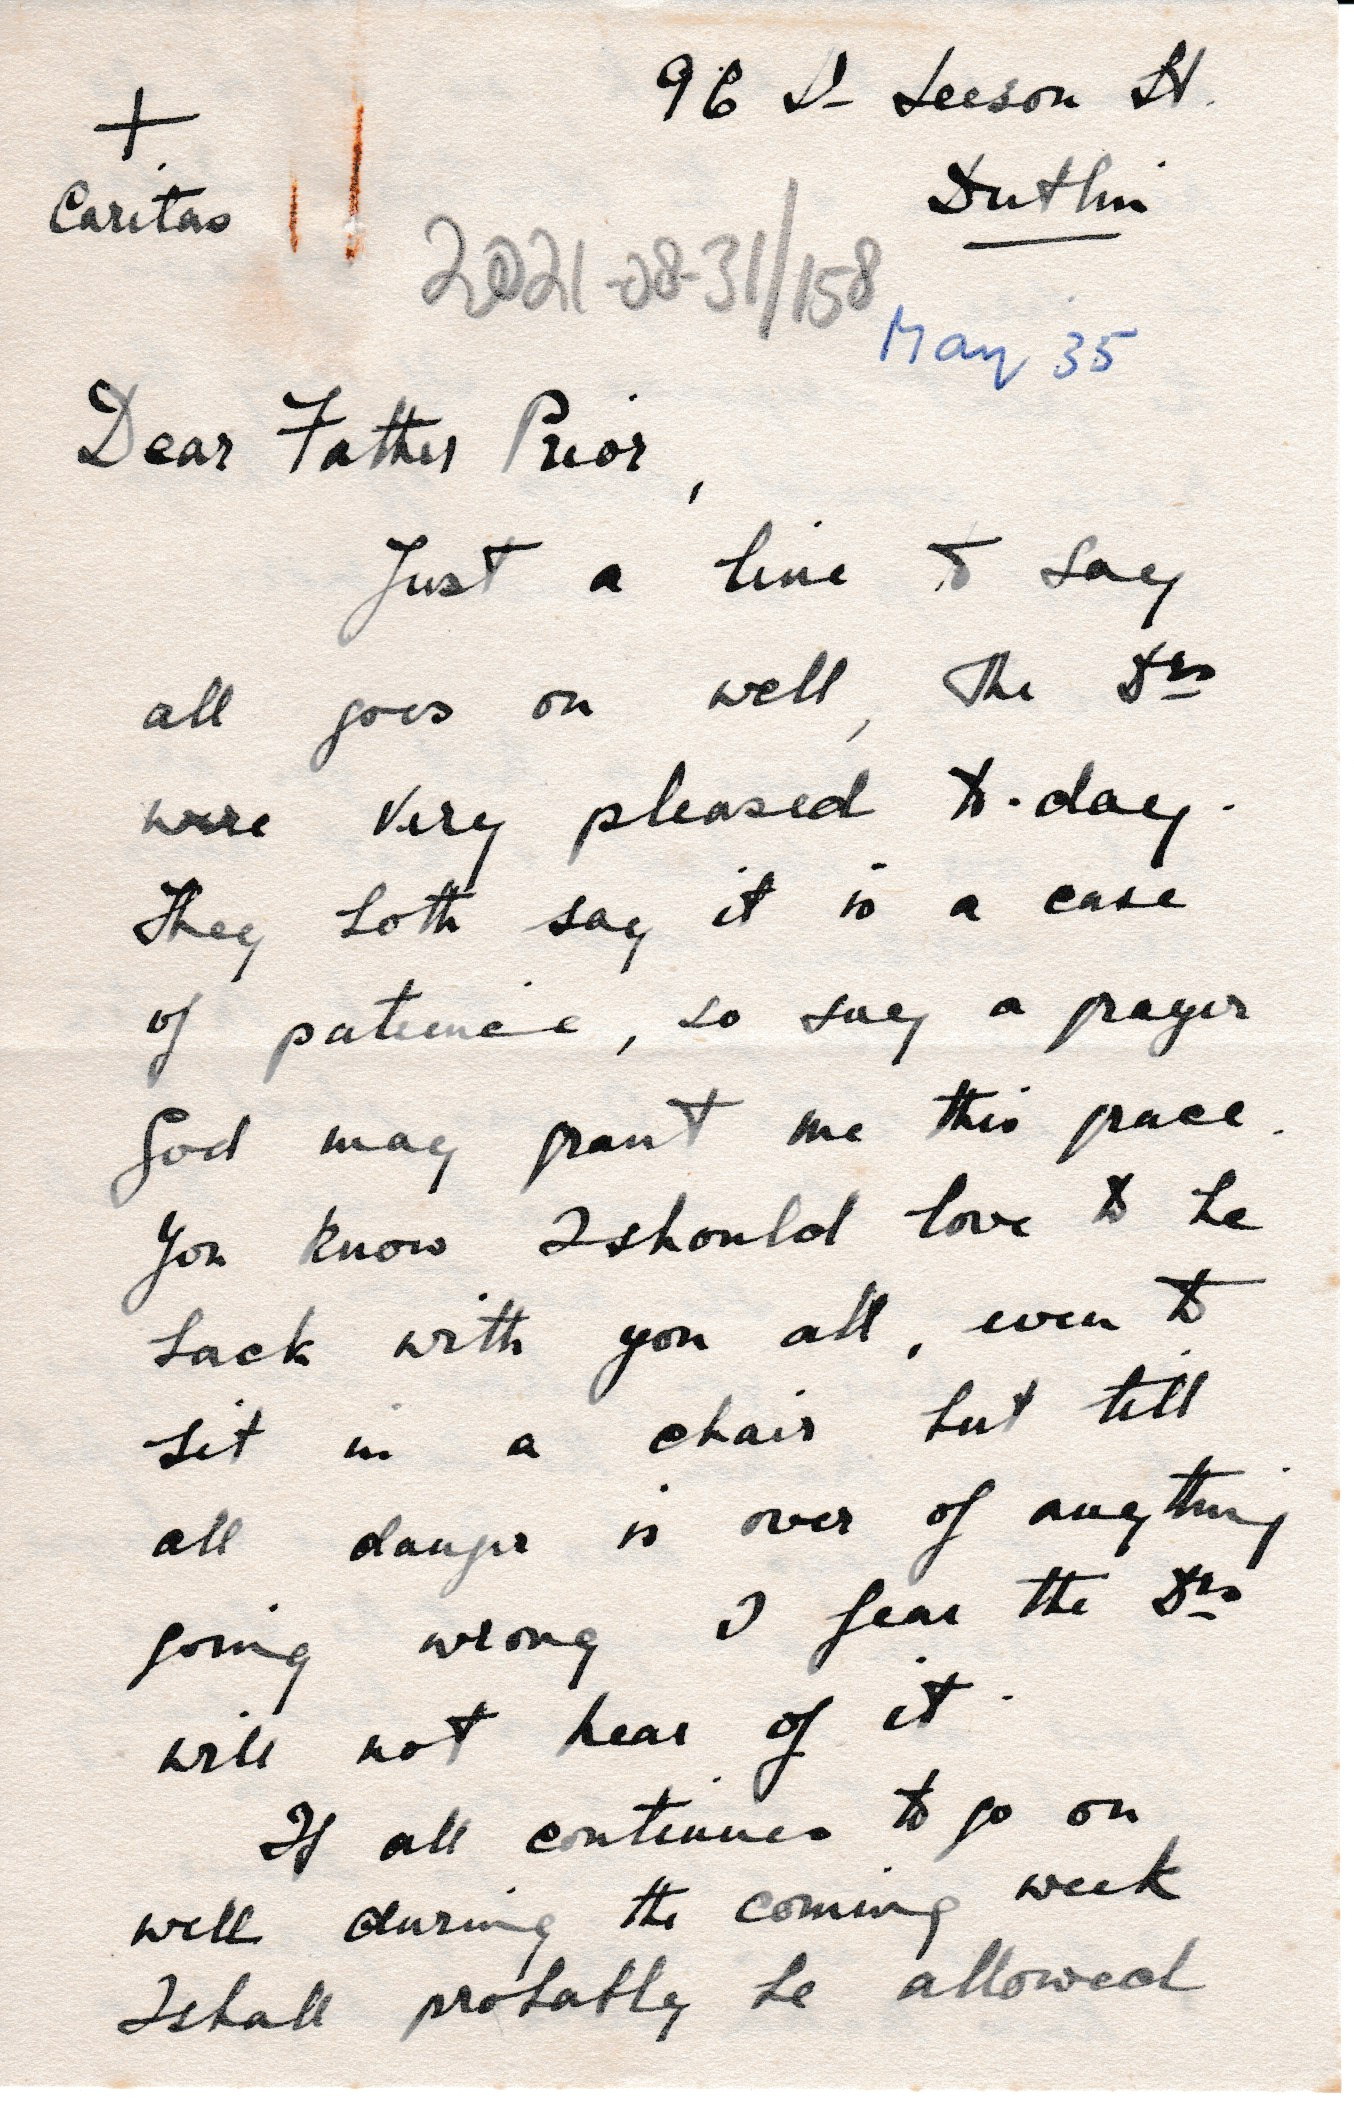 +
Caritas
96 Lr Leeson St.
Dublin
2021-08-31/158
May 35
Dear Father Prior,
Just a line to say
all goes on well, the Drs
were very pleased to-day.
They both say it is a case
of patience, so say a prayer
God may grant me this grace.
You know I should love to be
back with you all, even to
sit in a chair but till
all danger is over of anything
going wrong I fear the Drs
will not hear of it.
If all continues to go on
well during the coming week
I shall probably be allowed